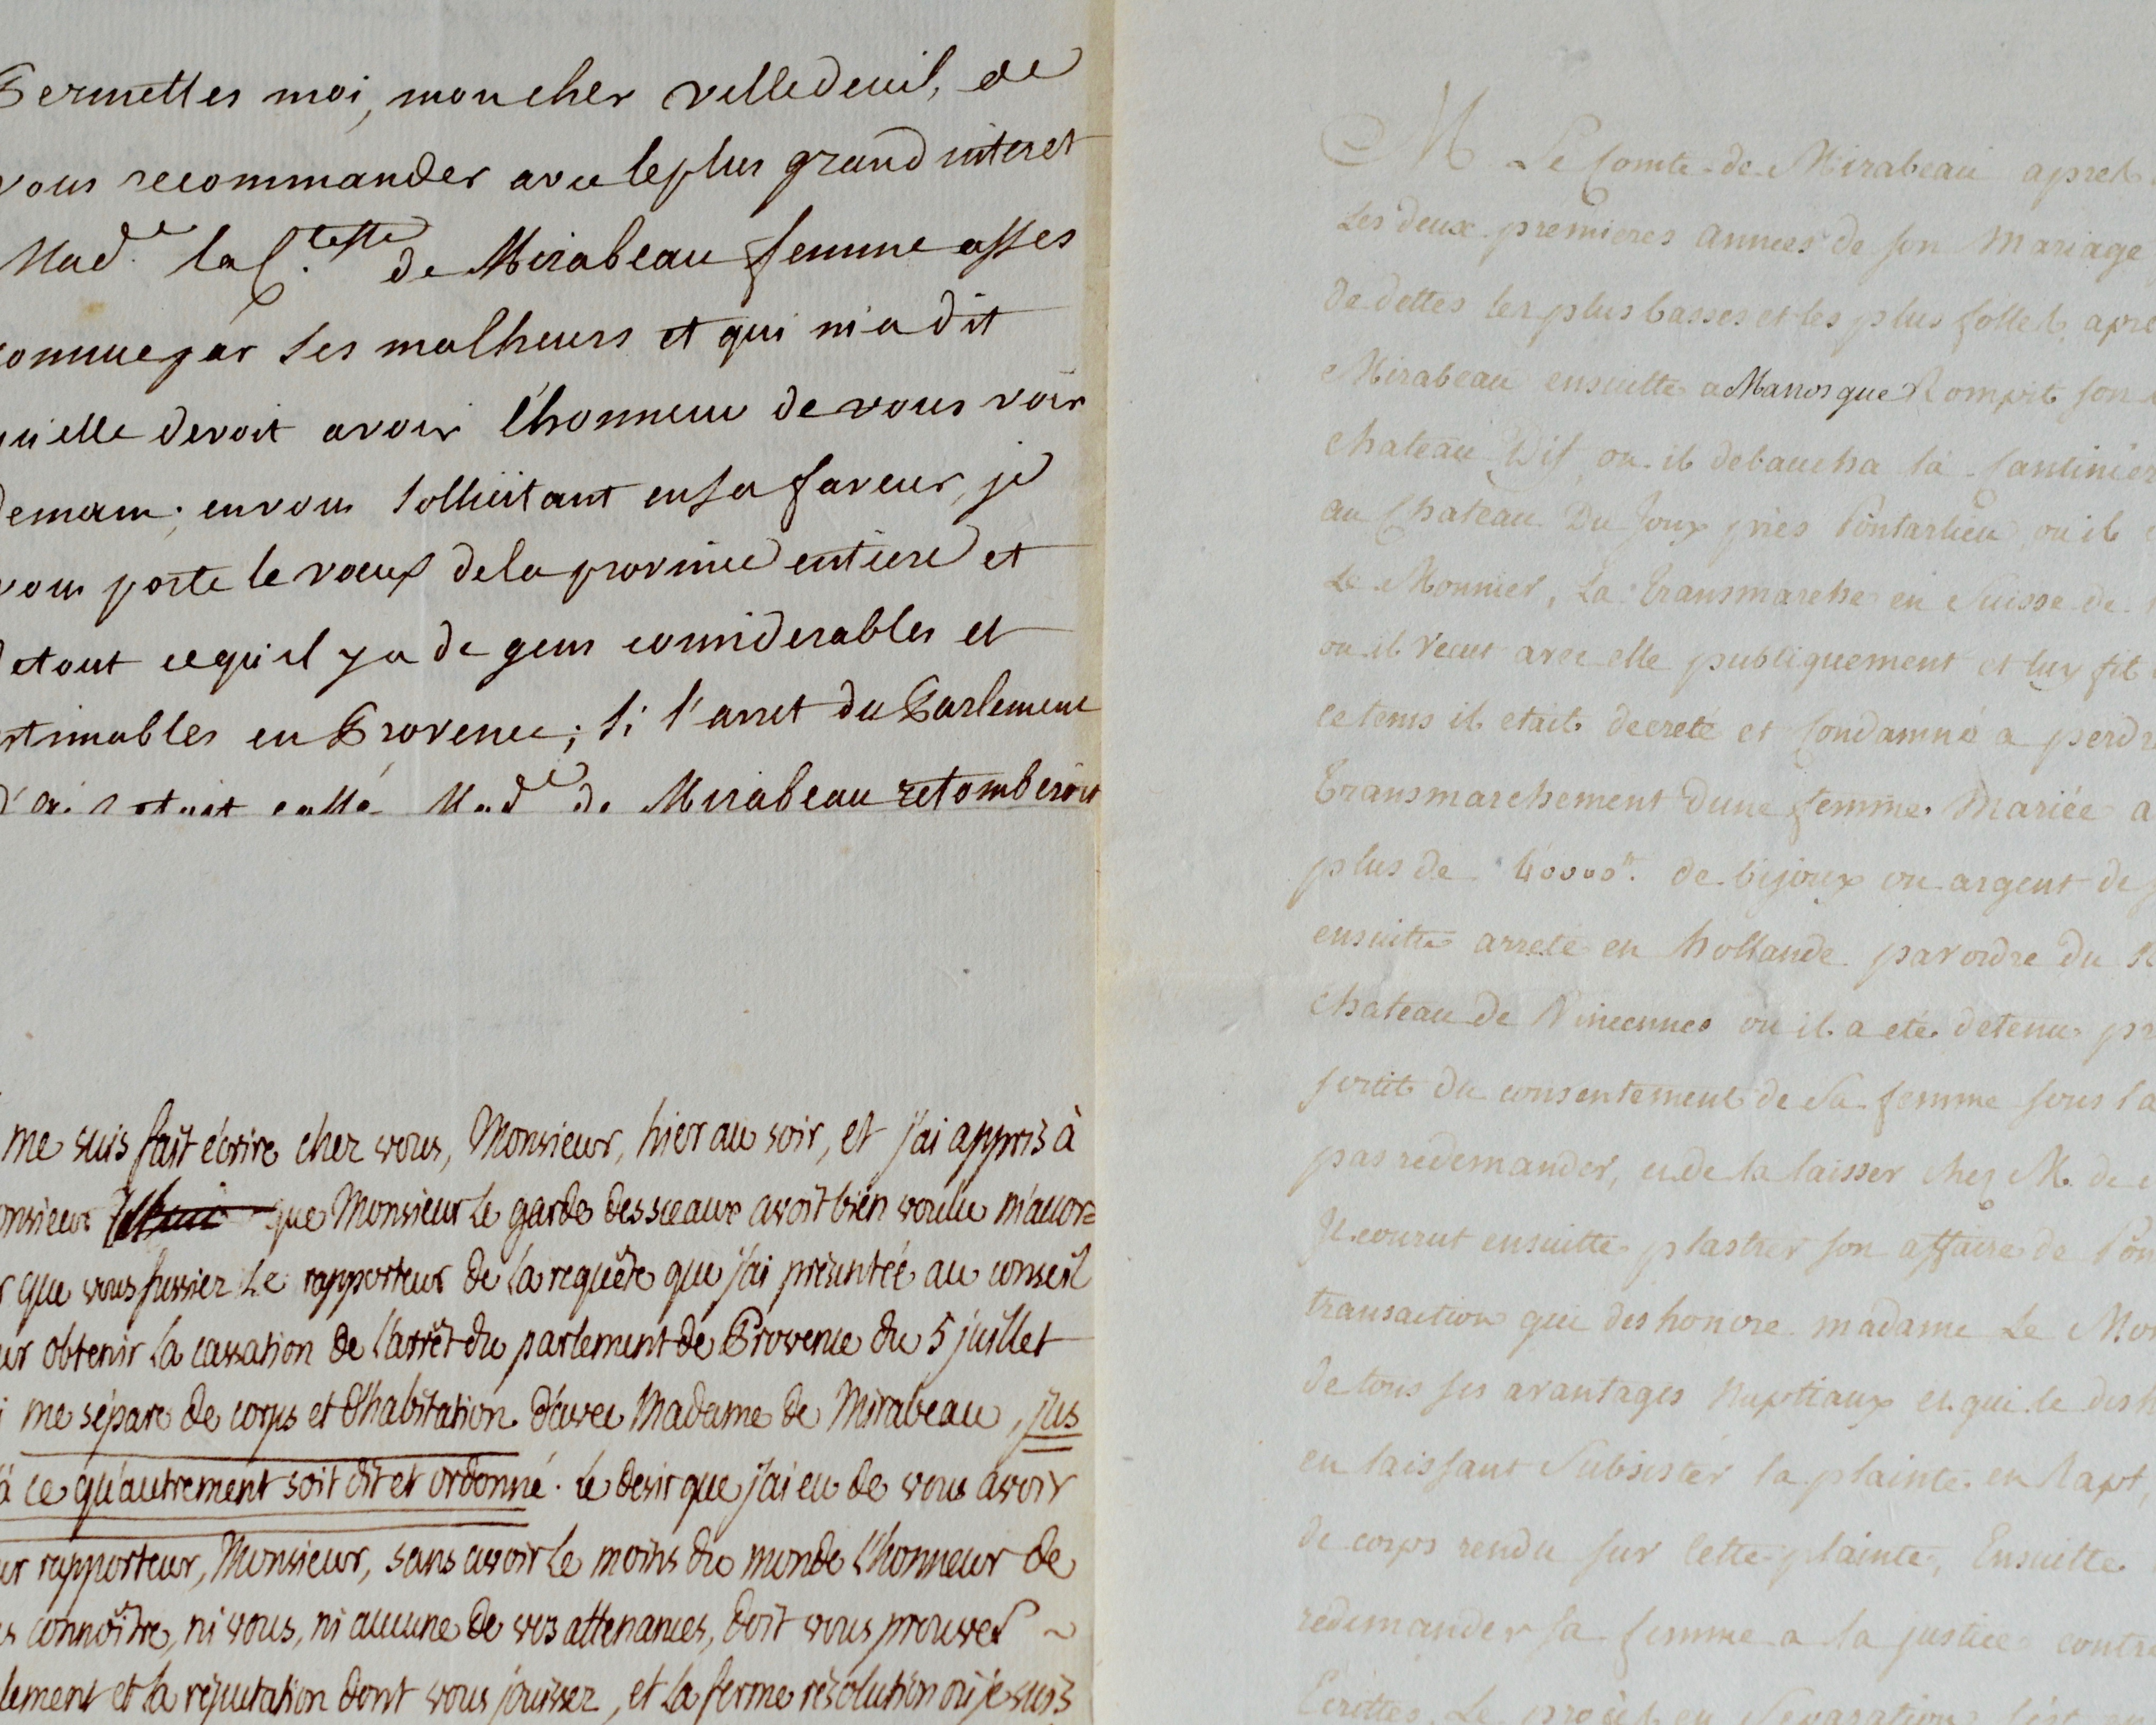 Permettes moi, mon cher villedeuil, de
vous recommander avec le plus grand interet
Mad.e la C.tesse de Mirabeau femme asses
connue par ses malheurs et qui m'a dit
qu'elle devoit avoir l'honneur de vous voir
demain; en vous sollicitant en sa faveur, je
vous porte le voeux de la province entiere et
de tout ce qu'il y a de gens considerables et
estimables en Provence; si l'arret du Parlement
d'aix etait cassé Mad.e de Mirabeau retomberoit
me suis fait écrire chez vous, Monsieur, hier au soir, et j'ai appris à
que Monsieur le garde des sceaux avoit bien voulu m'accor=
que vous fussiez le rapporteur de la requête que j'ai présentée au conseil
obtenir la cassation de l'arrêt du parlement de Provence du 5 juillet
me sépare de corps et d'habitation d'avec Madame de Mirabeau, jus
à ce qu'autrement soit dit et ordonné. Le desir que j'ai eu de vous avoir
rapporteur, Monsieur, sans avoir le moins du monde l'honneur de
connoître, ni vous, ni aucune de vos attenances, doit vous prouver ~
et la réputation dont vous jouissez, et la ferme résolution où je suis
M Le Comte de Mirabeau apres
Les deux premieres annees de son Mariage
de dettes les plus basses et les plus folles, apre
Mirabeau ensuitte a Manosque Rompit son
chateau Dif, ou il debaucha la Cantinier
au Chateau Du Joux pries Pontarlieu ou il
Le Monnier, La Transmarcha en Suisse de
ou il vecut avec elle publiquement et luy fit
ce tems il etait decrete et Condamné a perdre
Transmarchement dune femme Mariée a
plus de 40000tt. de bijoux ou argent de
ensuitte arreté en hollande par ordre du
chateau de Vincennes ou il a eté detenu
sortit du consentement de sa femme sous la
pas redemander, et de la laisser chez M. de
Il courut ensuitte plastrer son affaire de Pon
transaction qui deshonore madame Le Mon
de tous ses avantages Nuptiaux et qui le des
en laissant subsister la plainte en Rapt,
de corps rendu sur Cette plainte, Ensuitte
redemander sa femme a la justice contre
Ecrittes, Le procès en Separation